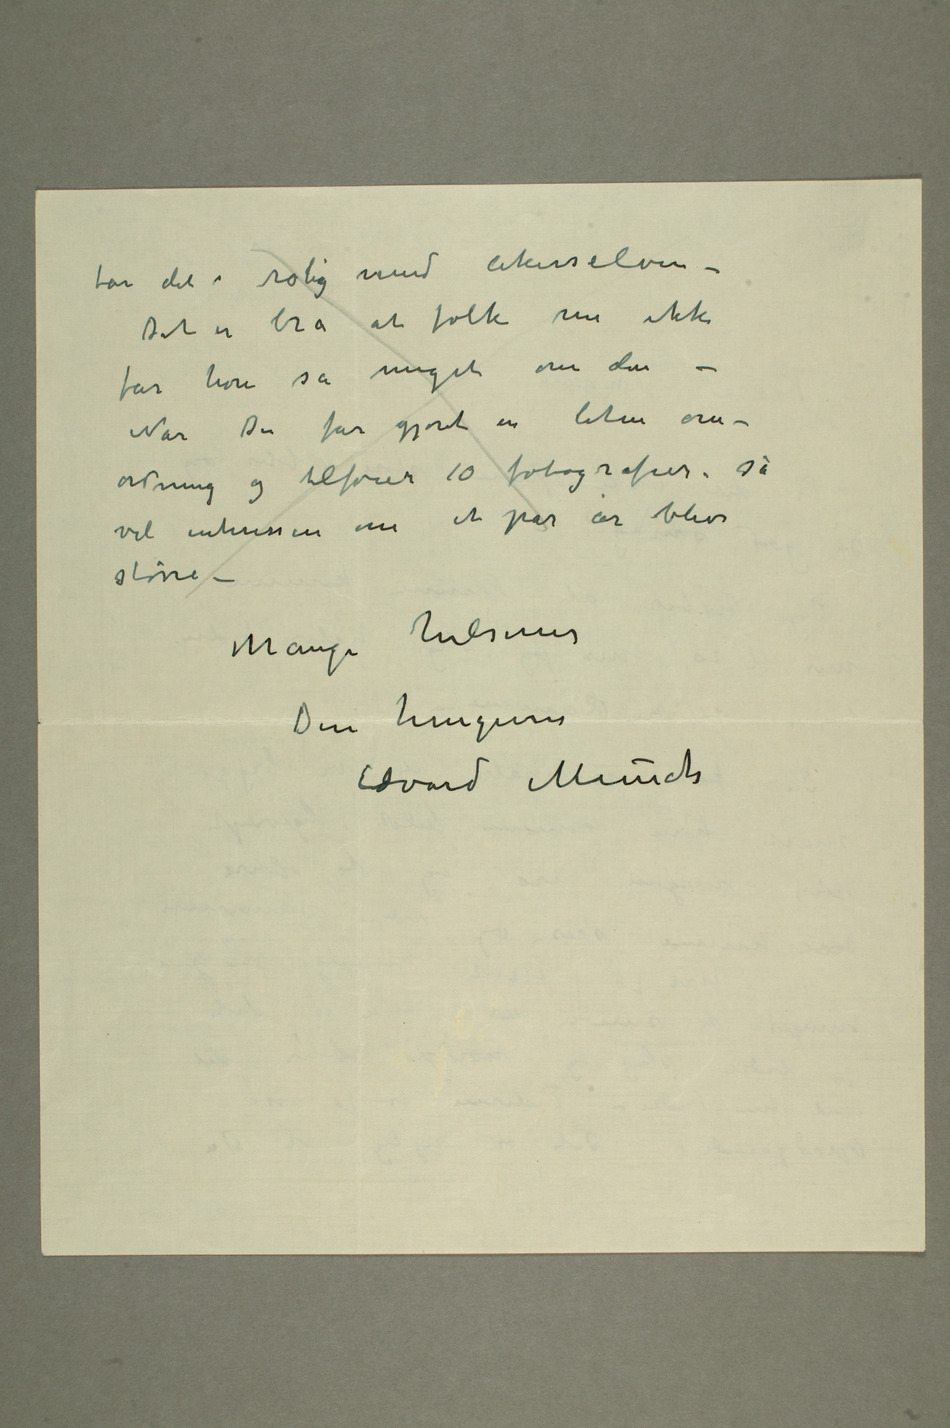 tar det i rolig med Akerselven –
Det er bra at folk nu ikke
får høre så meget om den –
Når Du får gjort en liten om–
ordning og tilføier 10 fotografier. så
vil interessen om et par år blive
større –
Mange hilsener
Din hengivne
Edvard Munch